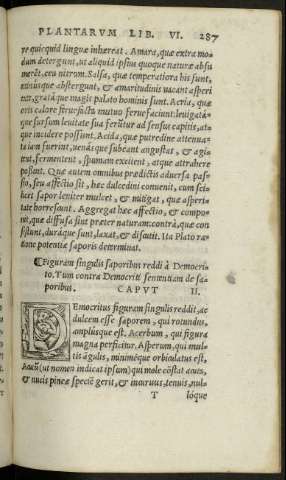 PLANTARVM LIB. VI. 287
re quicquid linguæ inhæreat. Amara, quæ extra mo-
dum detergunt, ut aliquid ipsius quoque naturæ absu
merẽt, ceu nitrom. Salsa, quæ temperatiora his sunt,
minusque abstergunt, & amaritudinis uacant asperi
tate, grata que magis palato hominis sunt. Acria, quæ
oris calore
mutuo feruefaciunt: leuitatá-
que sursum leuitate sua feruntur ad sensus capitis, at-
que incidere possunt. Acida, quæ putredine attenua-
ta iam fuerint, uenasque subeant angustas, & agi-
tent, fermentent, spumam excitent, atque attrahere
possant. Quæ autem omnibus prædictis aduersa pas-
sio, seu affectio sit, hæc dulcedini conuenit, cum sci-
licet sapor leniter mulcet, & mitigat, quæ asperi-
tate horrescunt. Aggregat hæc affectio, & compo-
nit, quæ diffusa sint præter naturam: contrà, quæ con
sistunt, duráque sunt, laxat, & discutit. Ita Plato ra-
tione potentiæ saporis determinat.
¶Figuram singulis saporibus reddi à Democri-
to. Tum contra Democriti sententiam de sa-
poribus. CAPVT II.
DEmocritus figuram singulis reddit, ac
dulcem esse saporem, qui rotundus,
amplusque est. Acerbum, qui figura
magna perficitur. Asperum, qui mul-
tis ãgulis, miniméque orbiculatus est.
Acutũ (ut nomen indicat ipsum) qui mole cõstat acuta,
& nucis pineæ specię gerit, & incuruus, tenuis, nul-
T lóque